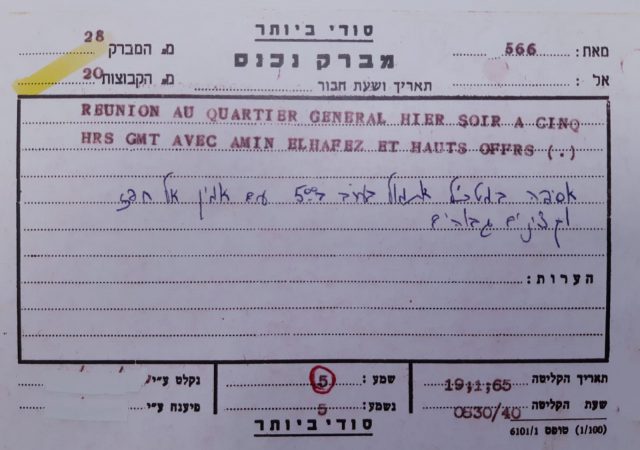 סודי ביותר
מאת: 566
מברק נכנס
מ. המברק 28
אל:
תאריך ושעת חבור
מ. הקבוצות 20
REUNION AU QUARTIER GENERAL HIER SOIR A CINQ
HRS GMT AVEC AMIN ELHAFEZ ET HAUTS OFFRS (.)
אסיפה במטכ"ל אתמול בערב ב 500 עם אמין אל חפז
וקצינים גבוהים
הערות:
תאריך הקליטה 19;1;65
שמע: 5
נקלט ע"י
שעת הקליטה 0530/40
נשמע: 5
פיענח ע"י
סודי ביותר
(1/100) טופס 6101/1